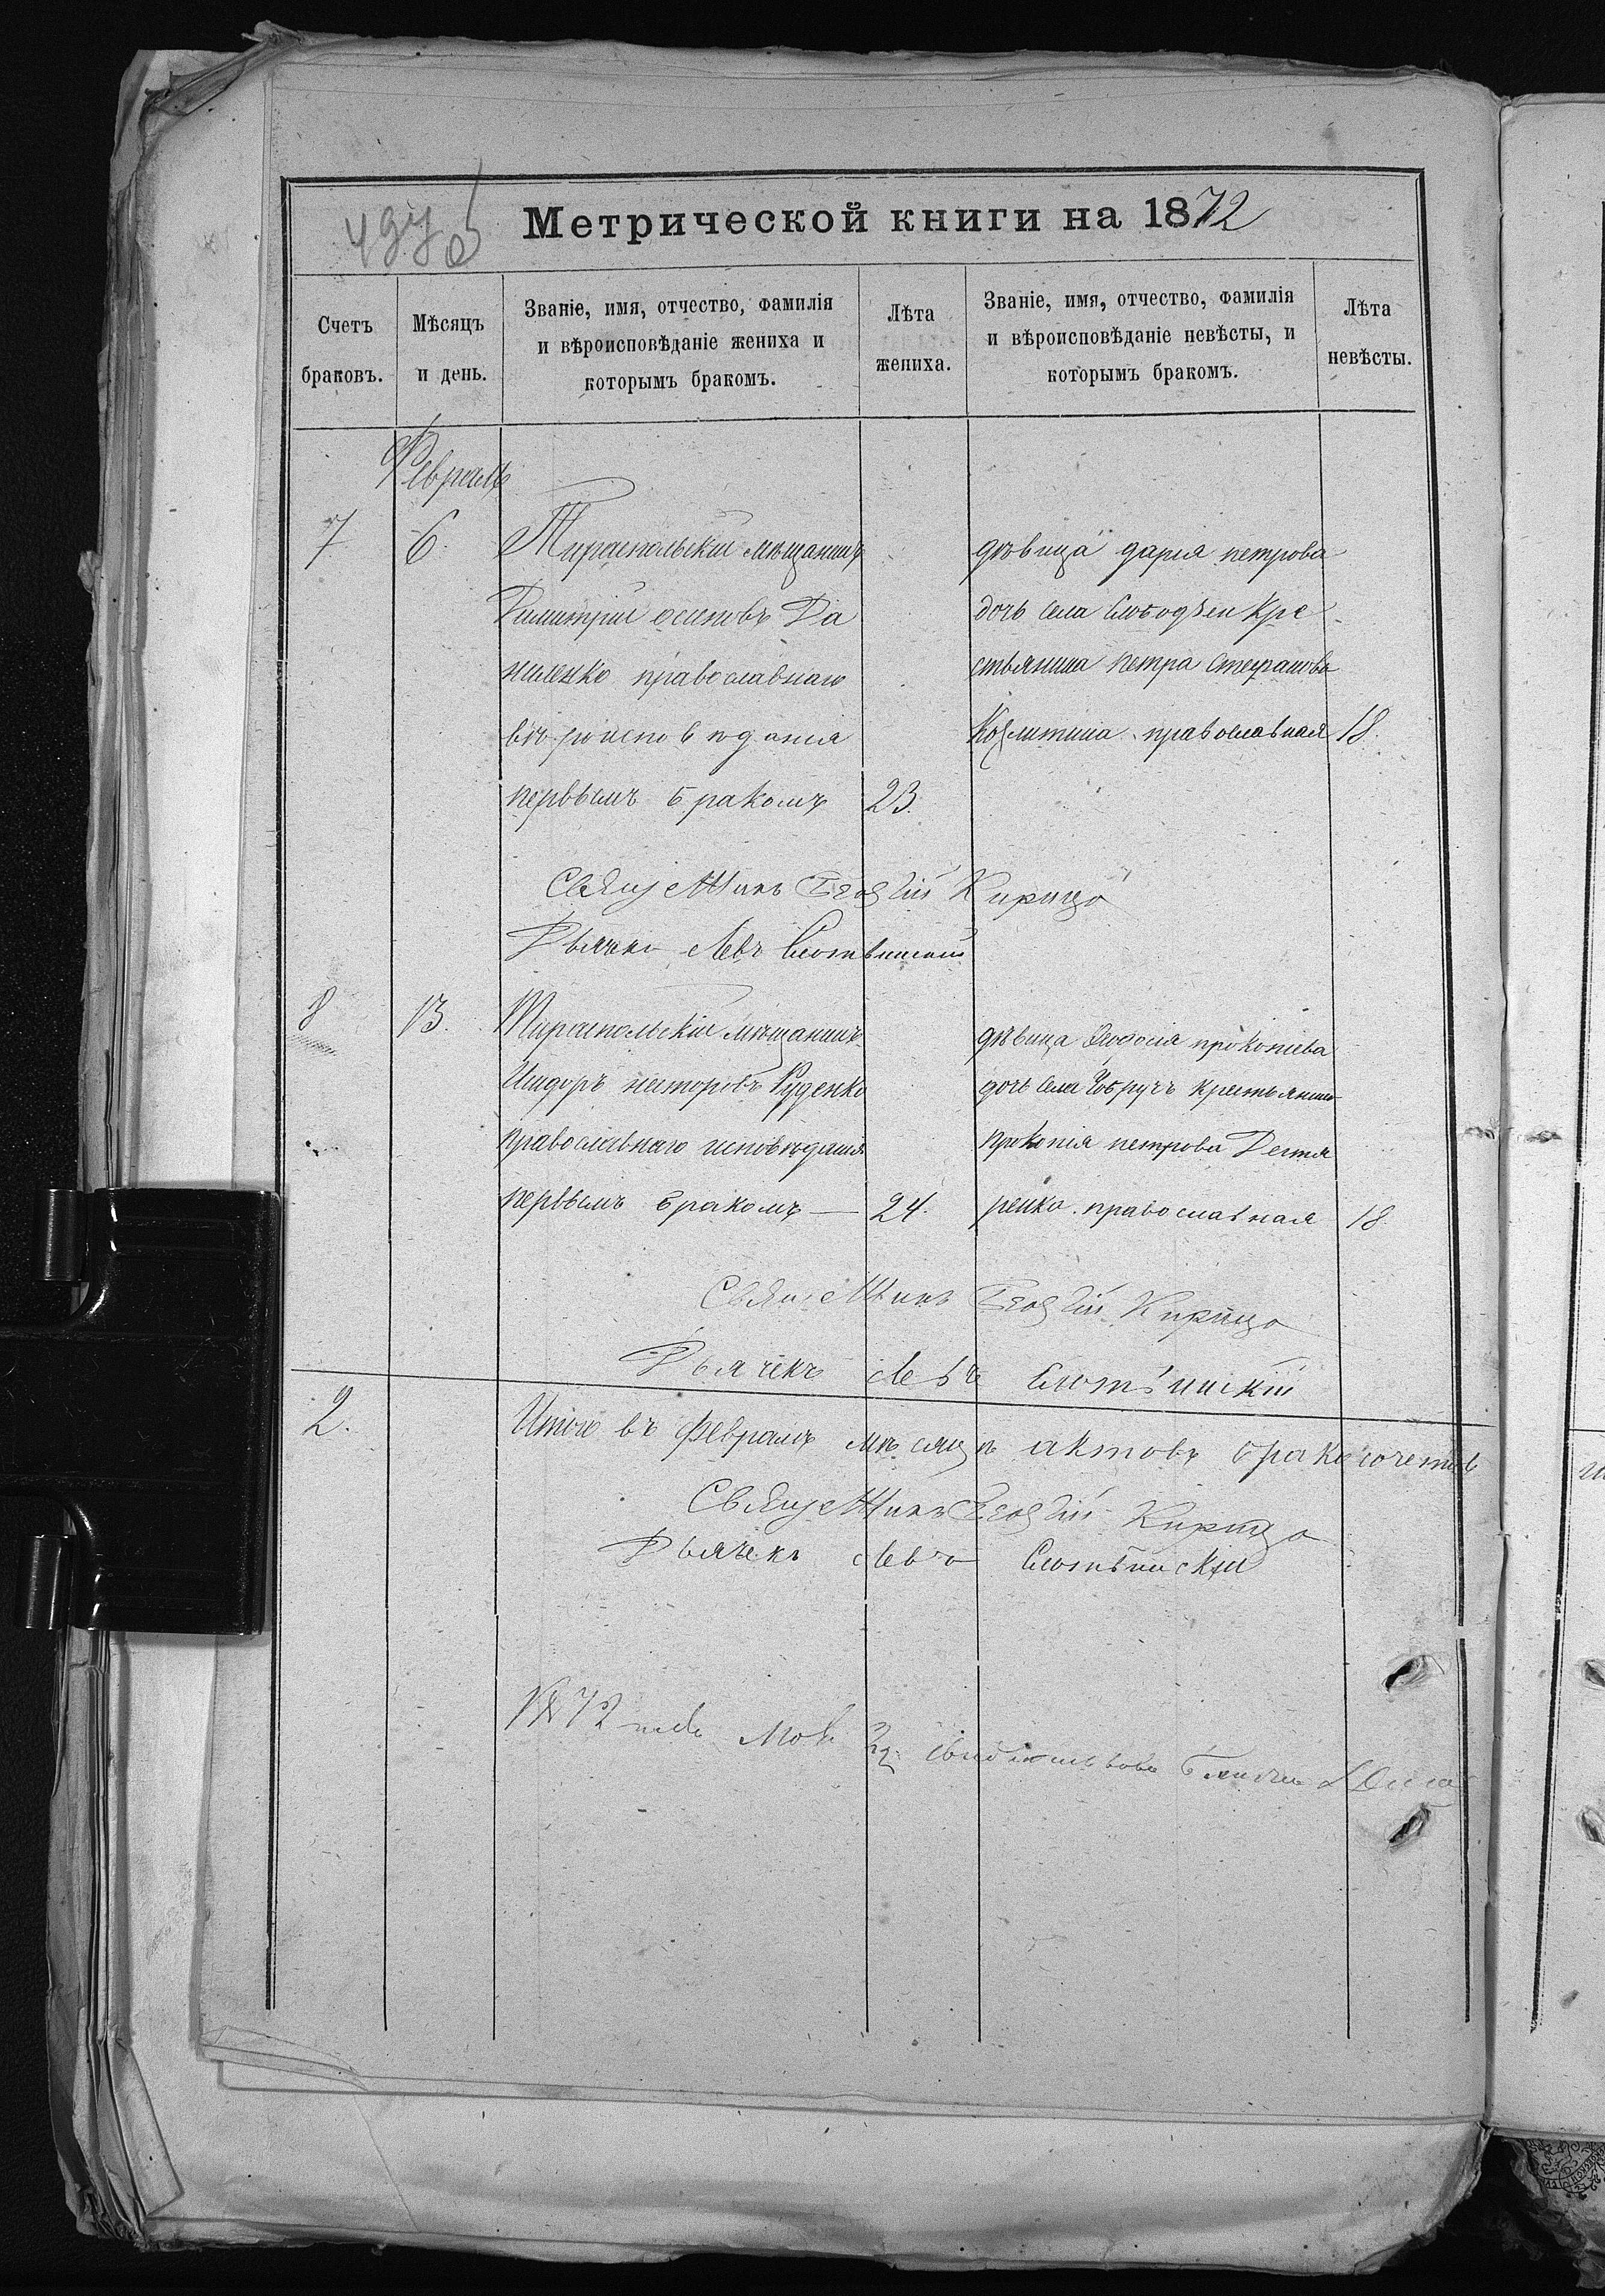 Метрической книги на 1872
Счетъ браковъ.
Мѣсяцъ и день.
Званіе, имя, отчество, фамилія
и вѣроисповѣданіе жениха и
которымъ бракомъ.
Лѣта жениха.
Званіе, имя, отчество, фамилія
и вѣроисповѣданіе невѣсты, и
которымъ бракомъ.
Лѣта невѣсты.
Февраль
7 6. Тираспольскій мѣщанинъ
Димитрій осиповъ Да
ниленко православнаго
вѣроисповѣданія
первымъ бракомъ 23.
дѣвица дарія петрова
дочь села Слободзеи Кре
стьянина петра Стефанова
православная 18.
Священникъ Георгій Кирица
Дьячекъ Левъ Слотвинскій
8 13. Тираспольскій мѣщанинъ
Исидоръ несторовъ Руденко
православнаго исповѣданія
первымъ бракомъ — 24.
дѣвица Феодосія прокопіева
дочь села Чобручъ крестьянина
прокопія петрова Дегтя
ренко православная 18
Священникъ Георгій Кирица
Дьячекъ Левъ Слотвинскій
2. Итого въ февралѣ мѣсяцѣ актовъ бракосочетав
Священникъ Георгій Кирица
Дьячекъ Левъ Слотвинскій
1872